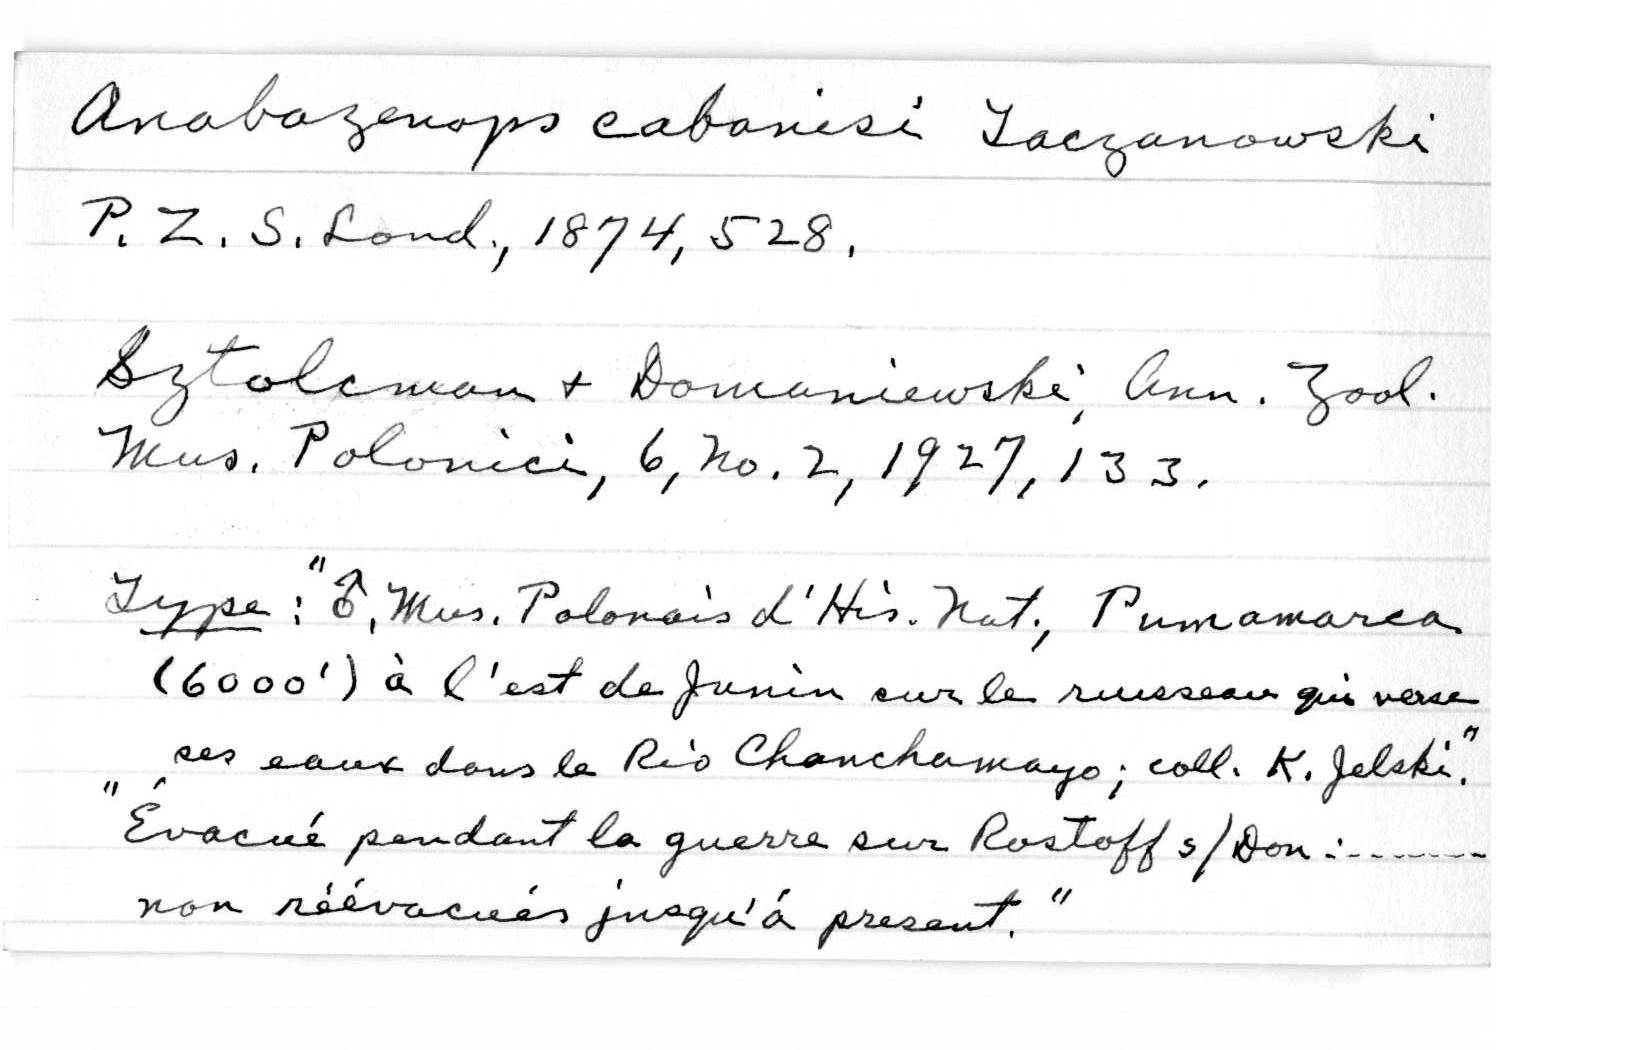 Anabazenops cabanisi Taczanowski
P. Z. S. Lond., 1874, 528.
Sztolcman + Domaniewski, Ann. Zool.
Mus. Polonici, 6, No. 2, 1927, 133.
Type: "♂, Mus. Polonais d'His. Nat., Pumamarca
(6000') à l'est de Junin sur le ruisseau qui verse
ses eaux dans le Rio Chanchamayo; coll. K. Jelski."
"Évacué pendant la guerre sur Rostoff s/Don :--------
non réévacués jusqu'á present."